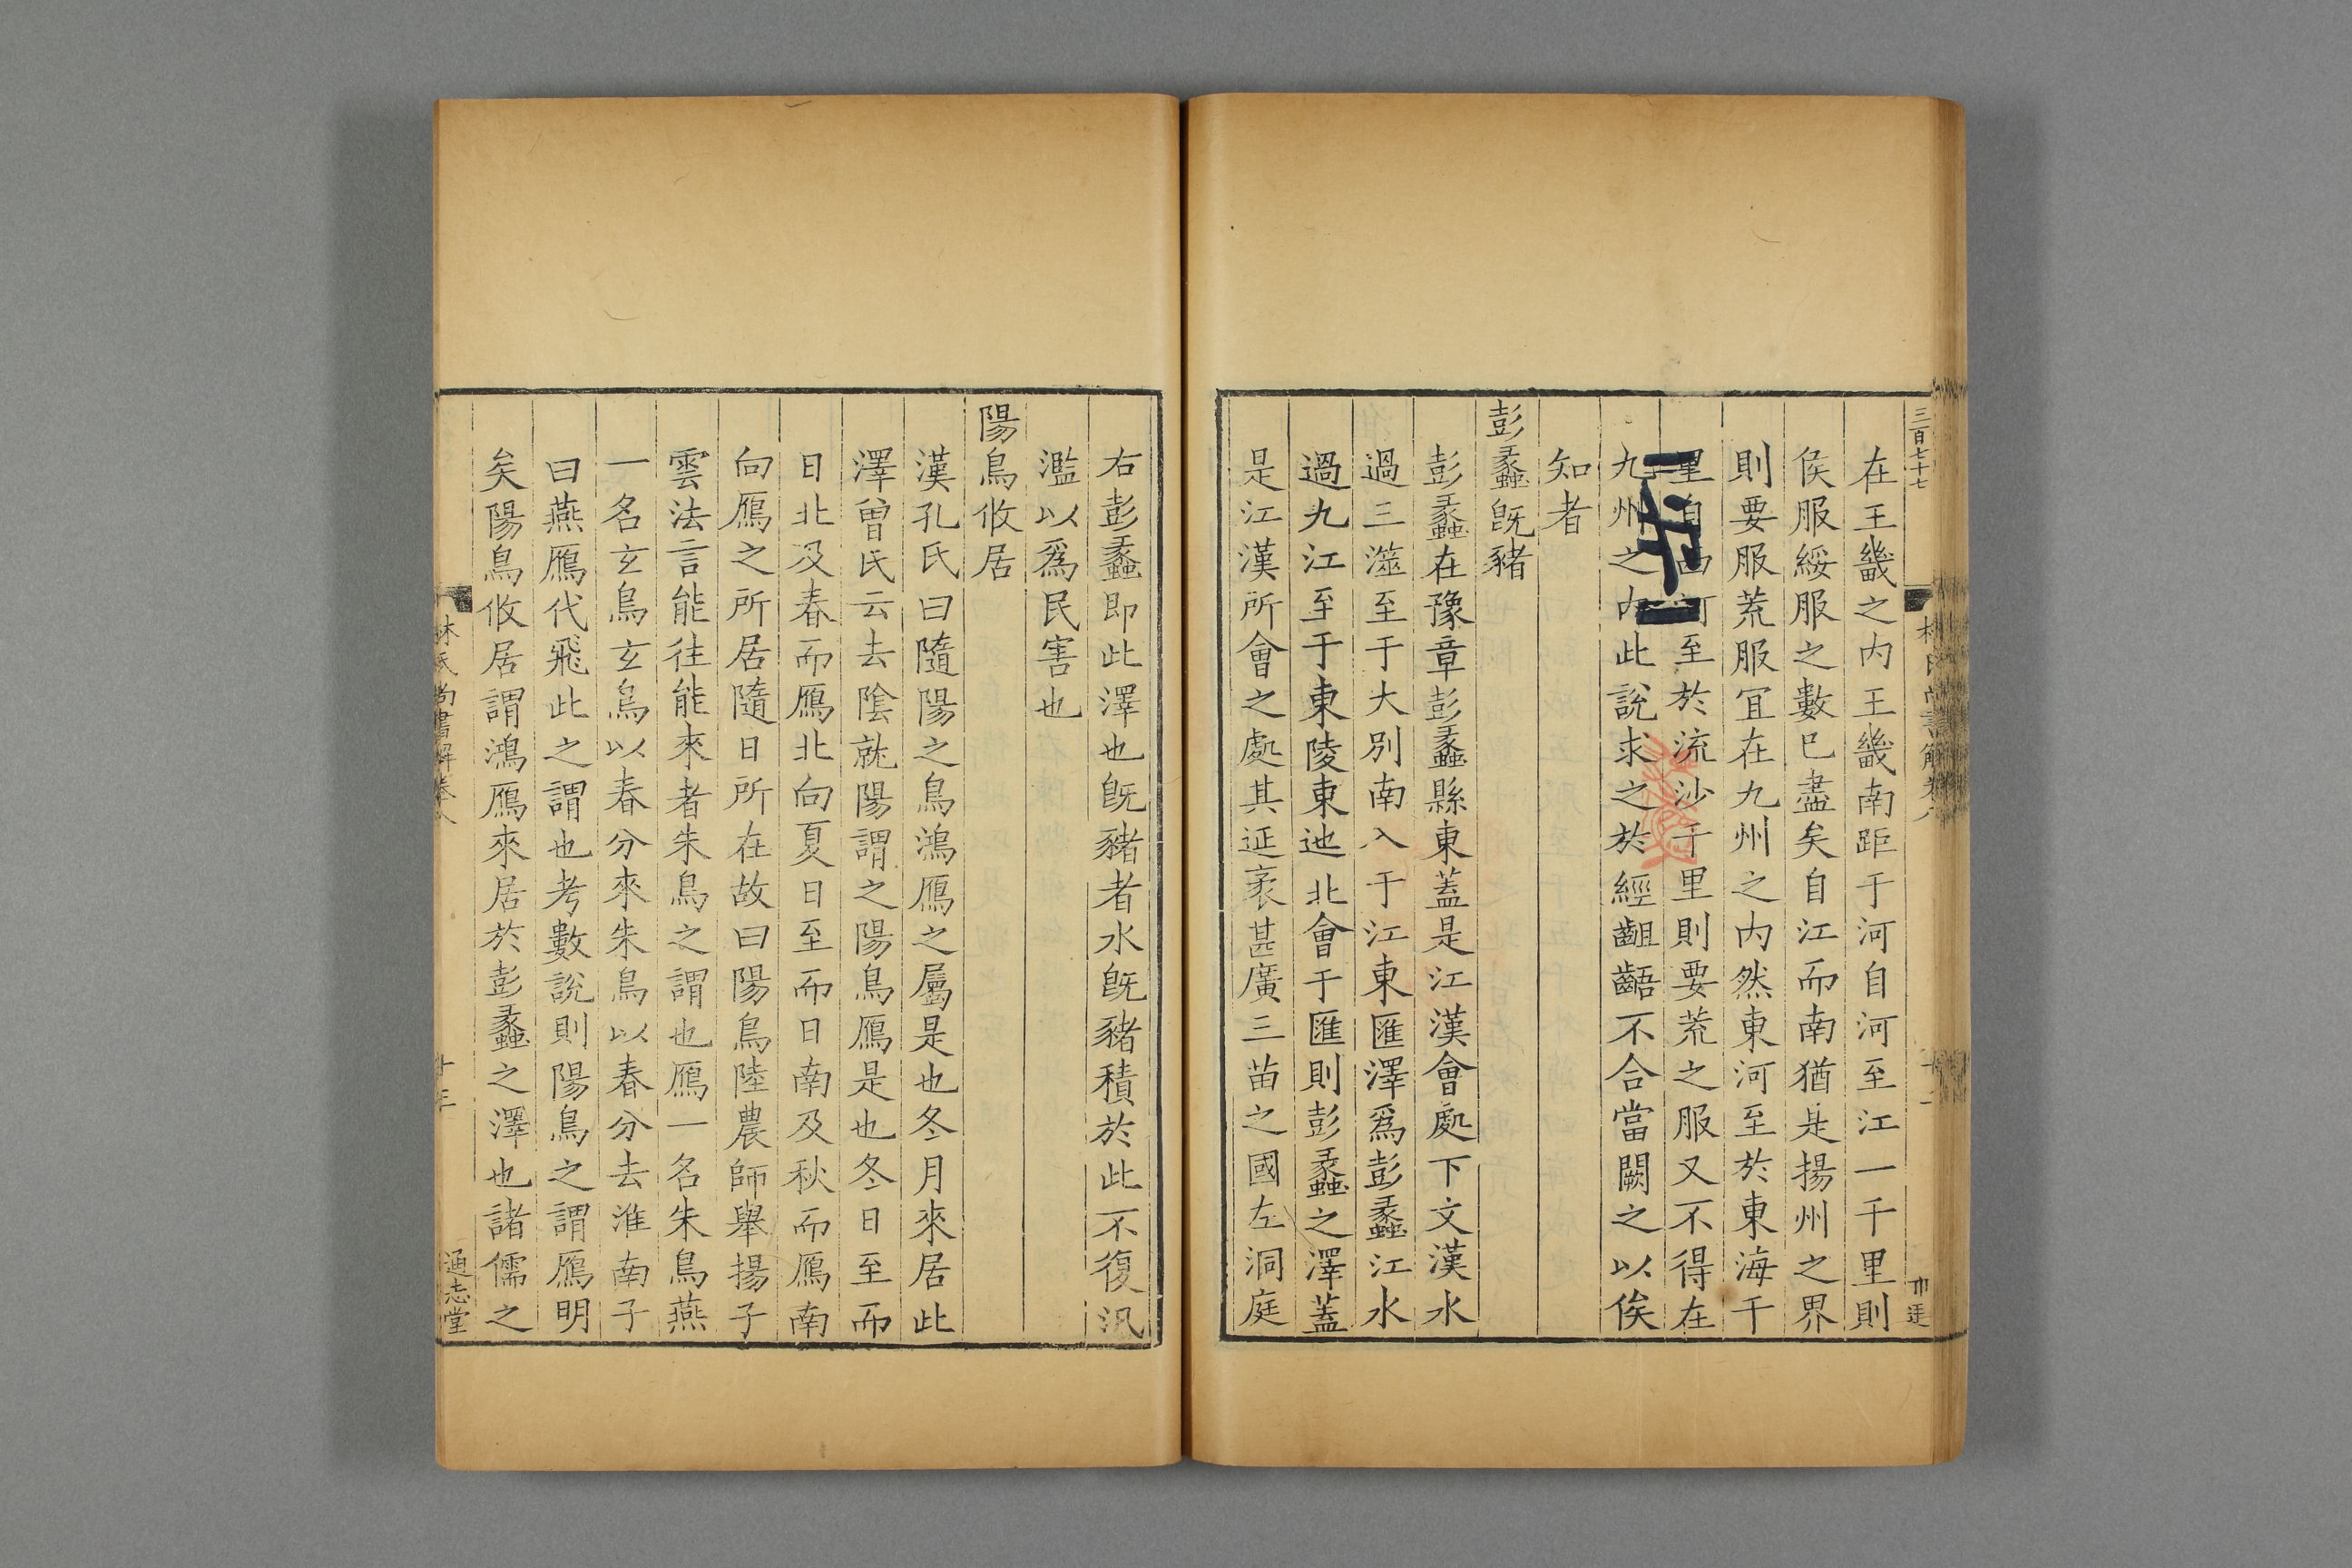 三百七十七
在王畿之内王畿南距于河自河至江一千里則
侯服綏服之數已盡矣自江而南猶是揚州之界
則要服荒服冝在九州之内然東河至於東海千
里自西河至於流沙千里則要荒之服又不得在
九州之内此說求之於經齟齬不合當闕之以俟
知者
彭蠡旣豬
彭蠡在豫章彭蠡縣東蓋是江漢會處下文漢水
過三澨至于大別南入于江東匯澤爲彭蠡江水
過九江至于東陵東迆北會于匯則彭蠡之澤蓋
是江漢所會之處其延袤甚廣三苗之國左洞庭
右彭蠡即此澤也旣豬者水旣豬積於此不復汎
濫以爲民害也
陽鳥攸居
漢孔氏曰隨陽之鳥鴻鴈之屬是也冬月來居此
澤曾氏云去陰就陽謂之陽鳥鴈是也冬日至而
日北及春而鴈北向夏日至而日南及秋而鴈南
向鴈之所居隨日所在故曰陽鳥陸農師舉揚子
雲法言能往能來者朱鳥之謂也鴈一名朱鳥燕
一名玄鳥玄鳥以春分來朱鳥以春分去淮南子
曰燕鴈代飛此之謂也考數說則陽鳥之謂鴈明
矣陽鳥攸居謂鴻鴈來居於彭蠡之澤也諸儒之
林氏尚書解卷八
通志堂